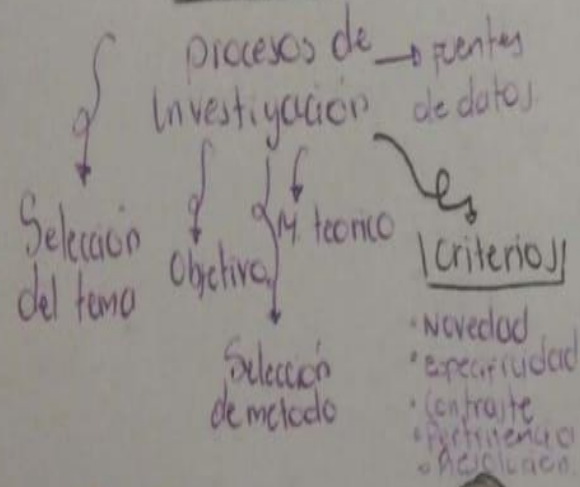 procesos de
investigación
→ fuentes
de datos
Selección
del tema
Objetivo
M. teorico
Selección
de metodo
Criterios
• Novedad
• especificidad
• Contraste
• Pertinencia